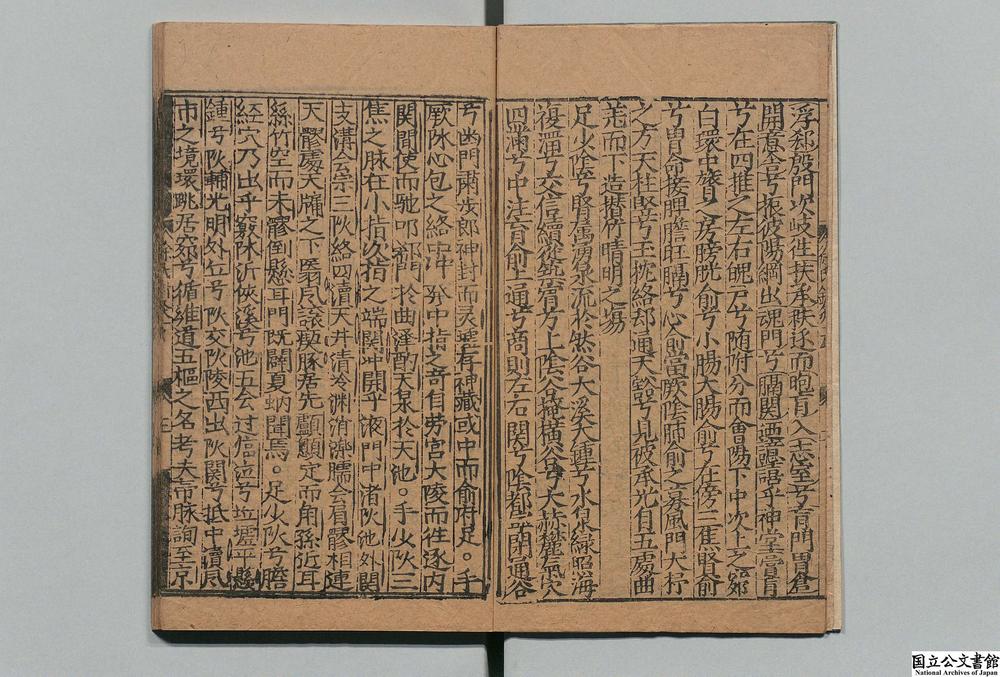 浮郄殷門次岐徃扶承秩逐而胞肓入志室兮肓門胃倉
開意舍兮振彼陽綱出魂門兮膈関譩譆乎神堂膏肓
兮在四推之左右魄戸兮随附分而會陽下中次上之窌
白環中膂房膀胱俞兮小腸大腸俞兮在傍三焦腎俞
兮胃俞接脾膽肝膈兮心俞當厥陰肺俞之募風門大杼
之方天柱堅兮玉枕絡却通天谿兮見彼承光自五處曲
差而下造攅竹睛明之場
足少陰兮腎属湧泉流於然谷大溪大鍾兮水泉緑照海
復溜兮交信續從築賔兮上陰谷掩横谷兮大赫麓氣穴
四滿兮中注肓俞上通兮商則左右関兮陰都閉通谷
兮幽門肅歩郎神封而灵墟存神藏或中而俞府足。手
厥阴心包之絡中冲發中指之奇自勞宮大陵而徃逐内
関間使而馳叩郄門於曲澤酌天泉於天池。手少阳三
焦之脉在小指次指之端関冲開乎液門中渚阳池外関
支溝会宗三阳絡四瀆天井清泠渊消濼臑会肩髎相連
天髎處天牖之下翳风讓瘈脉居先顱顖定而角孫近耳
絲竹空而禾髎倒懸耳門既闢夏蚋聞焉。足少阳兮膽
経穴乃出乎竅阴泝俠溪兮地五会过臨泣兮坵墟平懸
鍾兮阳輔光明外丘兮阳交阳陵西出阳関兮抵中瀆风
市之境環跳居窌兮循維道五樞之名考夫带脉詢至京
国立公文書館
National Archives of Japan